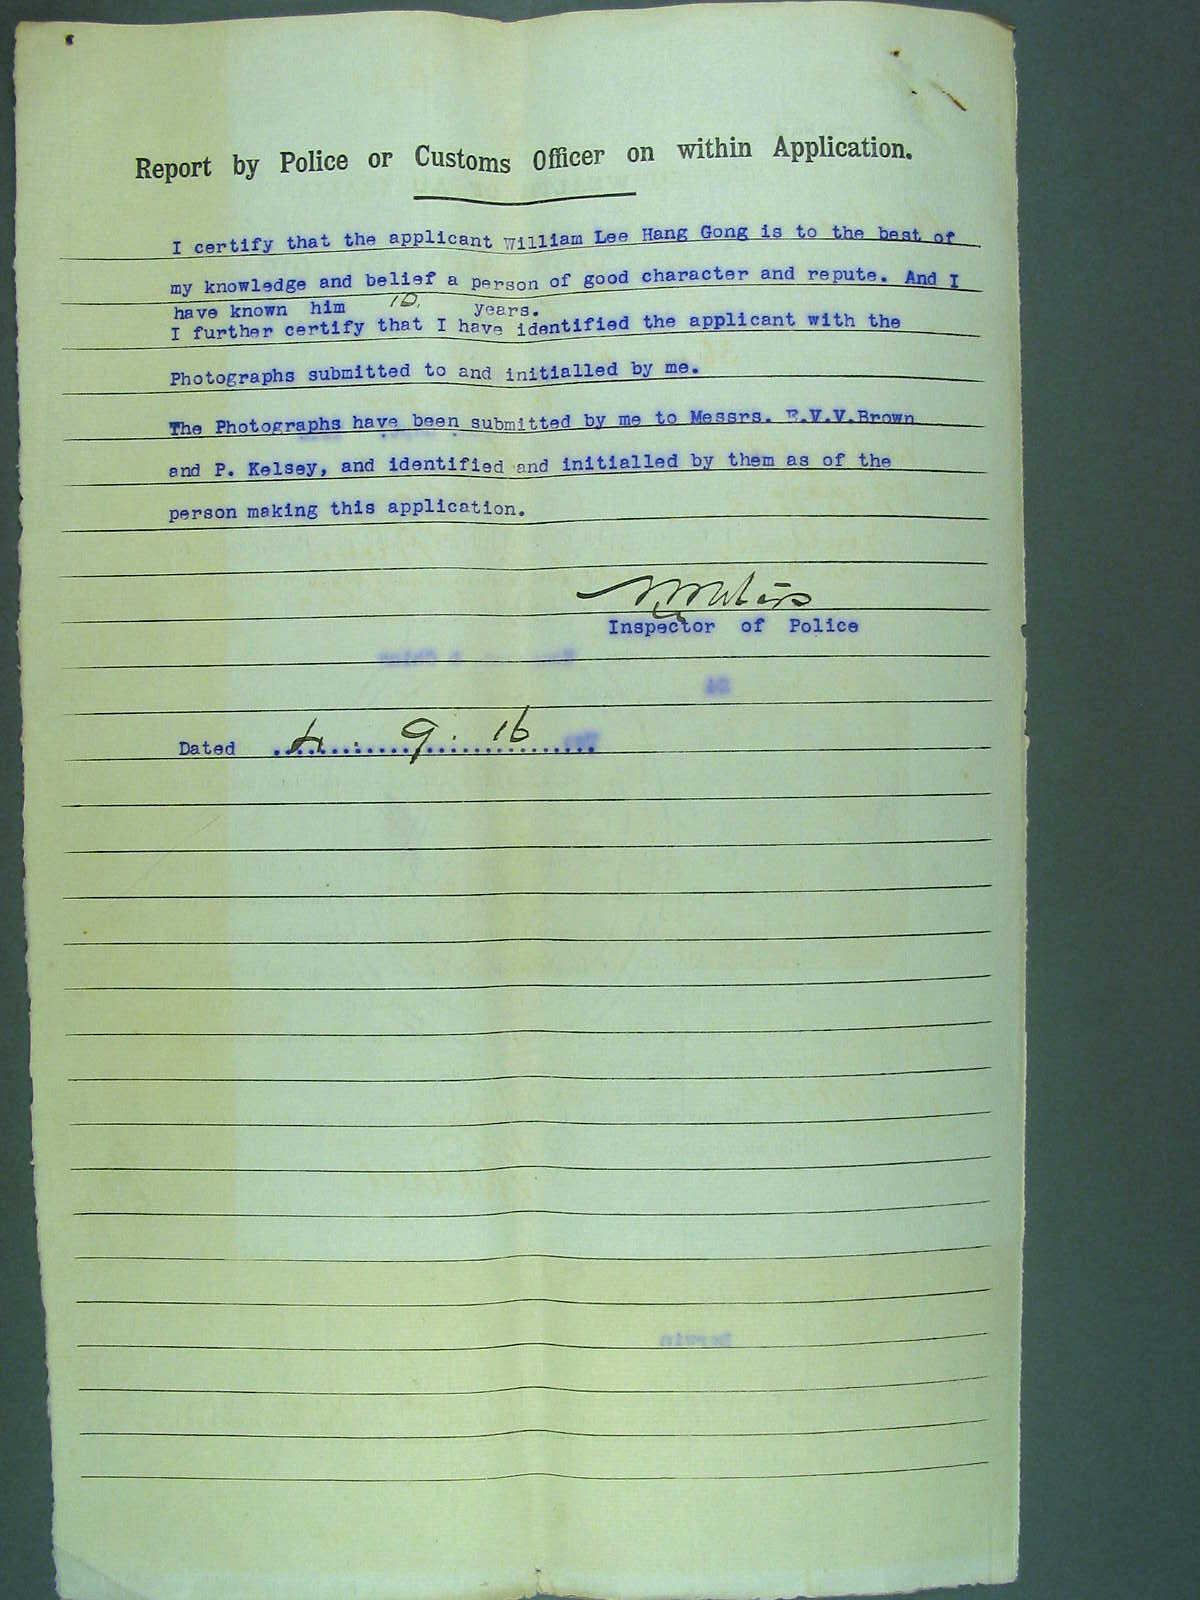 Report by Police or Customs Officer on within Application.
I certify that the applicant William Lee Hang Gong is to the best of
my knowledge and belief a person of good character and repute. And I
have known him 10. years.
I further certify that I have identified the applicant with the
Photographs submitted to and initialled by me.
The Photographs have been submitted by me to Messrs. E.V.V.Brown
and P. Kelsey, and identified and initialled by them as of the
person making this application.
Inspector of Police
Dated 4 . 9 . 16